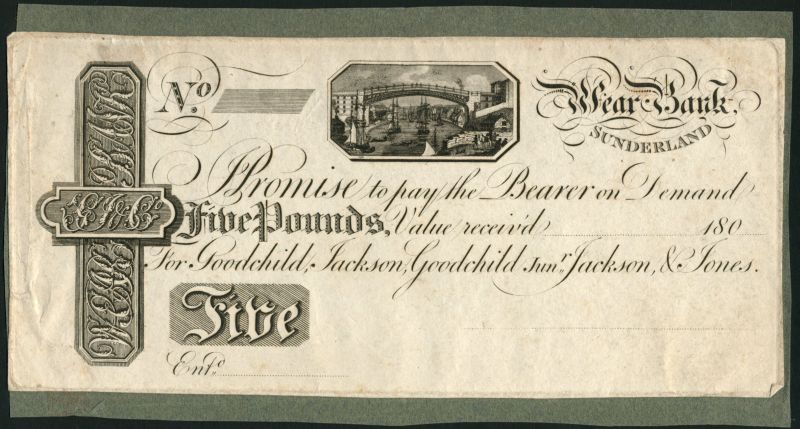 No.
Wear Bank,
SUNDERLAND
I Promise to pay the Bearer on Demand
Five Pounds, Value receiv'd 180
For Goodchild, Jackson, Goodchild Junr. Jackson, & Jones.
Five
Entd.
WEAR BANK